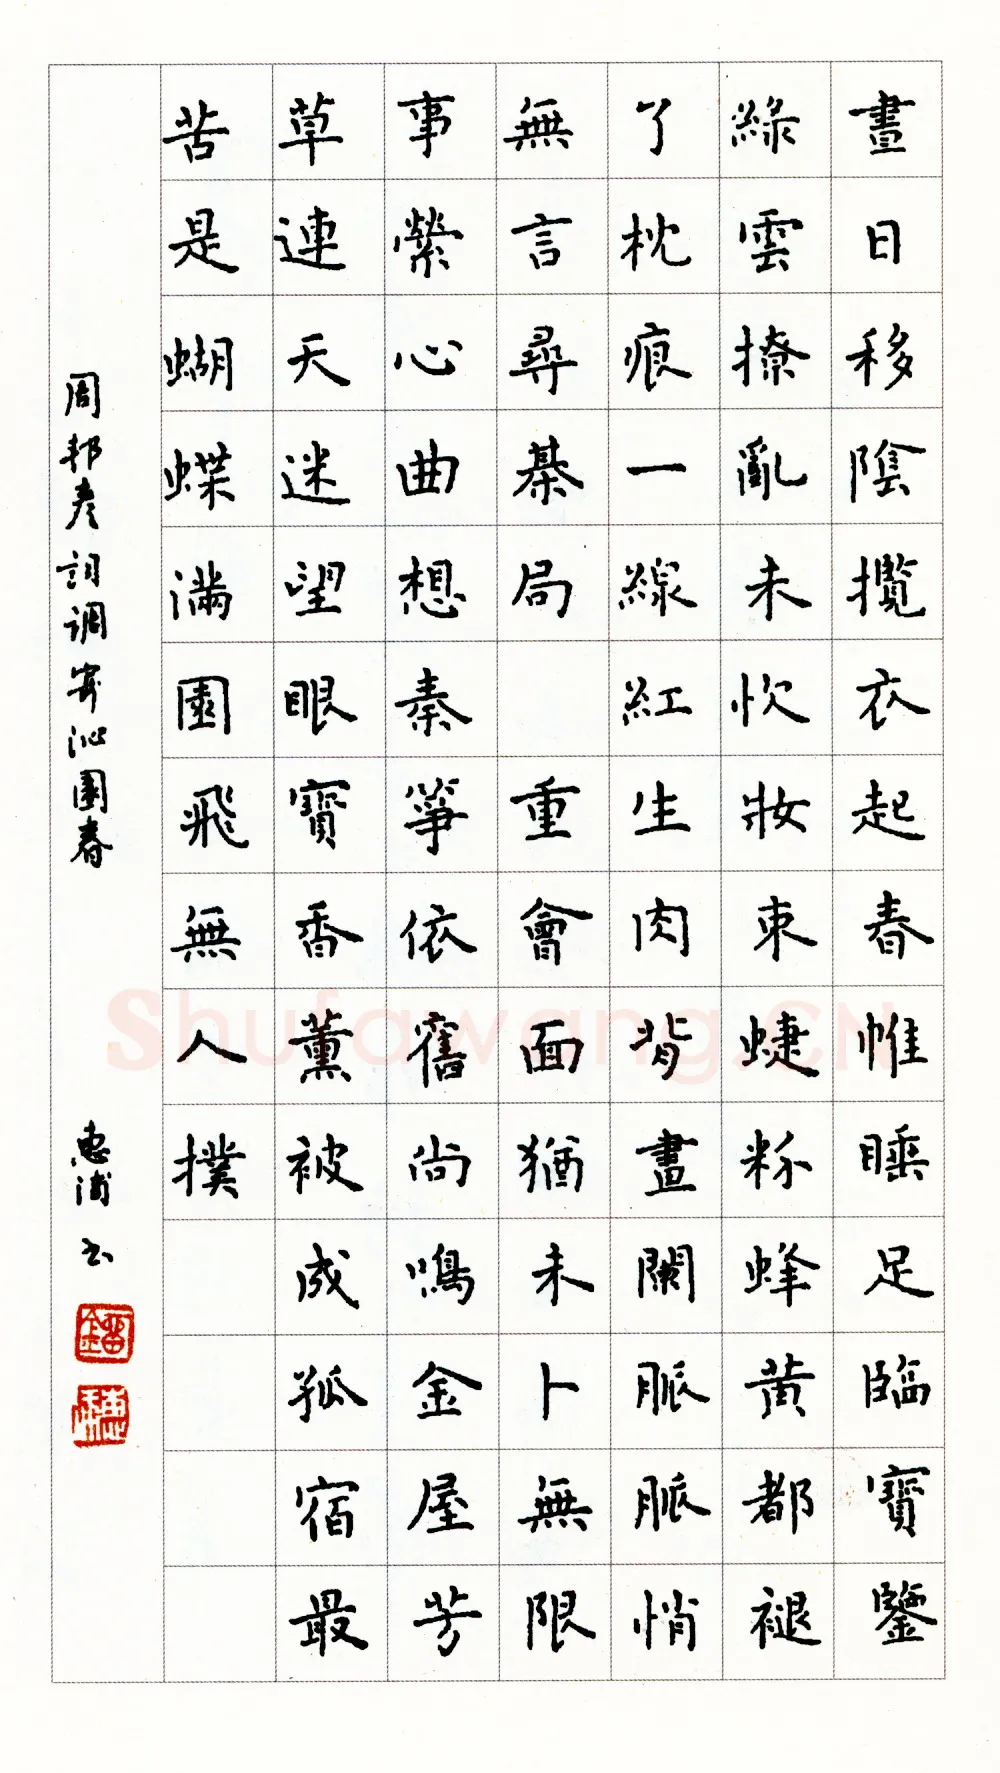 晝日移陰攬衣起春帷睡足臨寶鑒
綠雲撩亂未忺妝束蜨粉蜂黃都褪
了枕痕一線紅生肉背畫闌脈脈悄
無言尋棊局 重會面猶未卜無限
事縈心曲想秦箏依舊尚鳴金屋芳
草連天迷望眼寶香薰被成孤宿最
苦是蝴蝶滿園飛無人撲
周邦彥詞調寄沁園春
惠浦书
Shufawang.CN